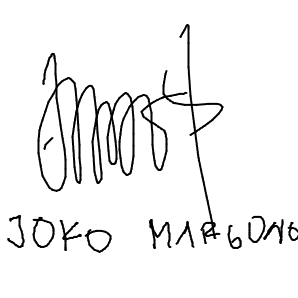 JOKO MARGONO